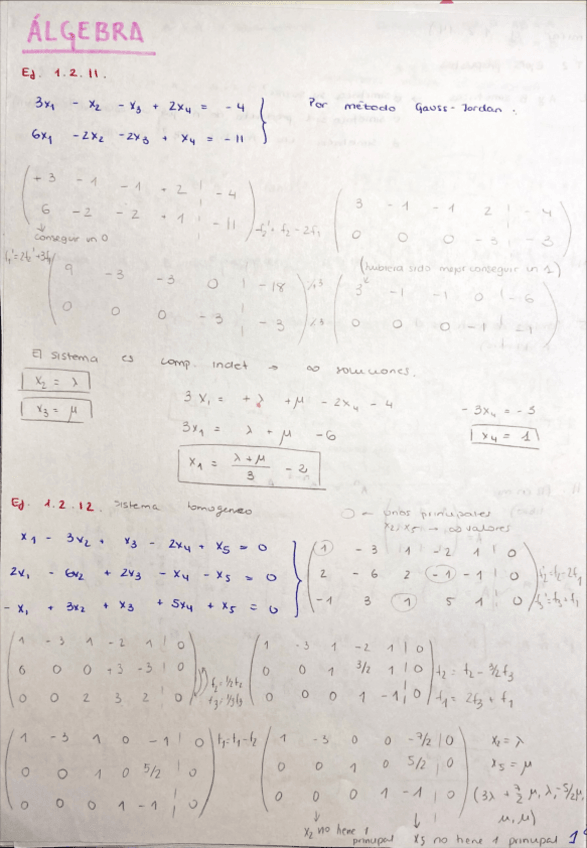 ÁLGEBRA
Ej. 1.2.11.
3x₁ - x₂ - x₃ + 2x₄ = -4
Por método Gauss-Jordan.
6x₁ - 2x₂ - 2x₃ + x₄ = -11
+3 -1 -1 +2 | -4
6 -2 -2 +1 | -11
f₂' = f₂ - 2f₁
3 -1 -1 2 | -4
0 0 0 -3 | -3
conseguir un 0
9 -3 -3 0 | -18
0 0 0 -3 | -3
(hubiera sido mejor conseguir un 1)
3 -1 -1 0 | -6
0 0 0 -1 | -1
El sistema es comp. indet → ∞ soluciones.
x₂ = λ
x₃ = μ
3x₁ = +λ + μ - 2x₄ - 4
3x₁ = λ + μ - 6
x₁ = (λ + μ)/3 - 2
-3x₄ = -3
x₄ = 1
Ej. 1.2.12. sistema homogéneo
○ → unos principales
x₂, x₅ → ∞ valores
x₁ - 3x₂ + x₃ - 2x₄ + x₅ = 0
2x₁ - 6x₂ + 2x₃ - x₄ - x₅ = 0
-x₁ + 3x₂ + x₃ + 5x₄ + x₅ = 0
1 -3 1 -2 1 | 0
2 -6 2 -1 -1 | 0
-1 3 1 5 1 | 0
f₂' = f₂ - 2f₁
f₃' = f₃ + f₁
1 -3 1 -2 1 | 0
0 0 0 +3 -3 | 0
0 0 2 3 2 | 0
f₂ = ½f₂
f₃ = ⅓f₃
1 -3 1 -2 1 | 0
0 0 1 3/2 1 | 0
0 0 0 1 -1 | 0
f₂ = f₂ - 3/2 f₃
f₁ = 2f₃ + f₁
1 -3 1 0 -1 | 0
0 0 1 0 5/2 | 0
0 0 0 1 -1 | 0
f₁ = f₁ - f₂
1 -3 0 0 -7/2 | 0
0 0 1 0 5/2 | 0
0 0 0 1 -1 | 0
x₂ = λ
x₅ = μ
(3λ + 7/2 μ, λ, -5/2 μ, μ, μ)
x₂ no tiene 1 principal
x₅ no tiene 1 principal
1